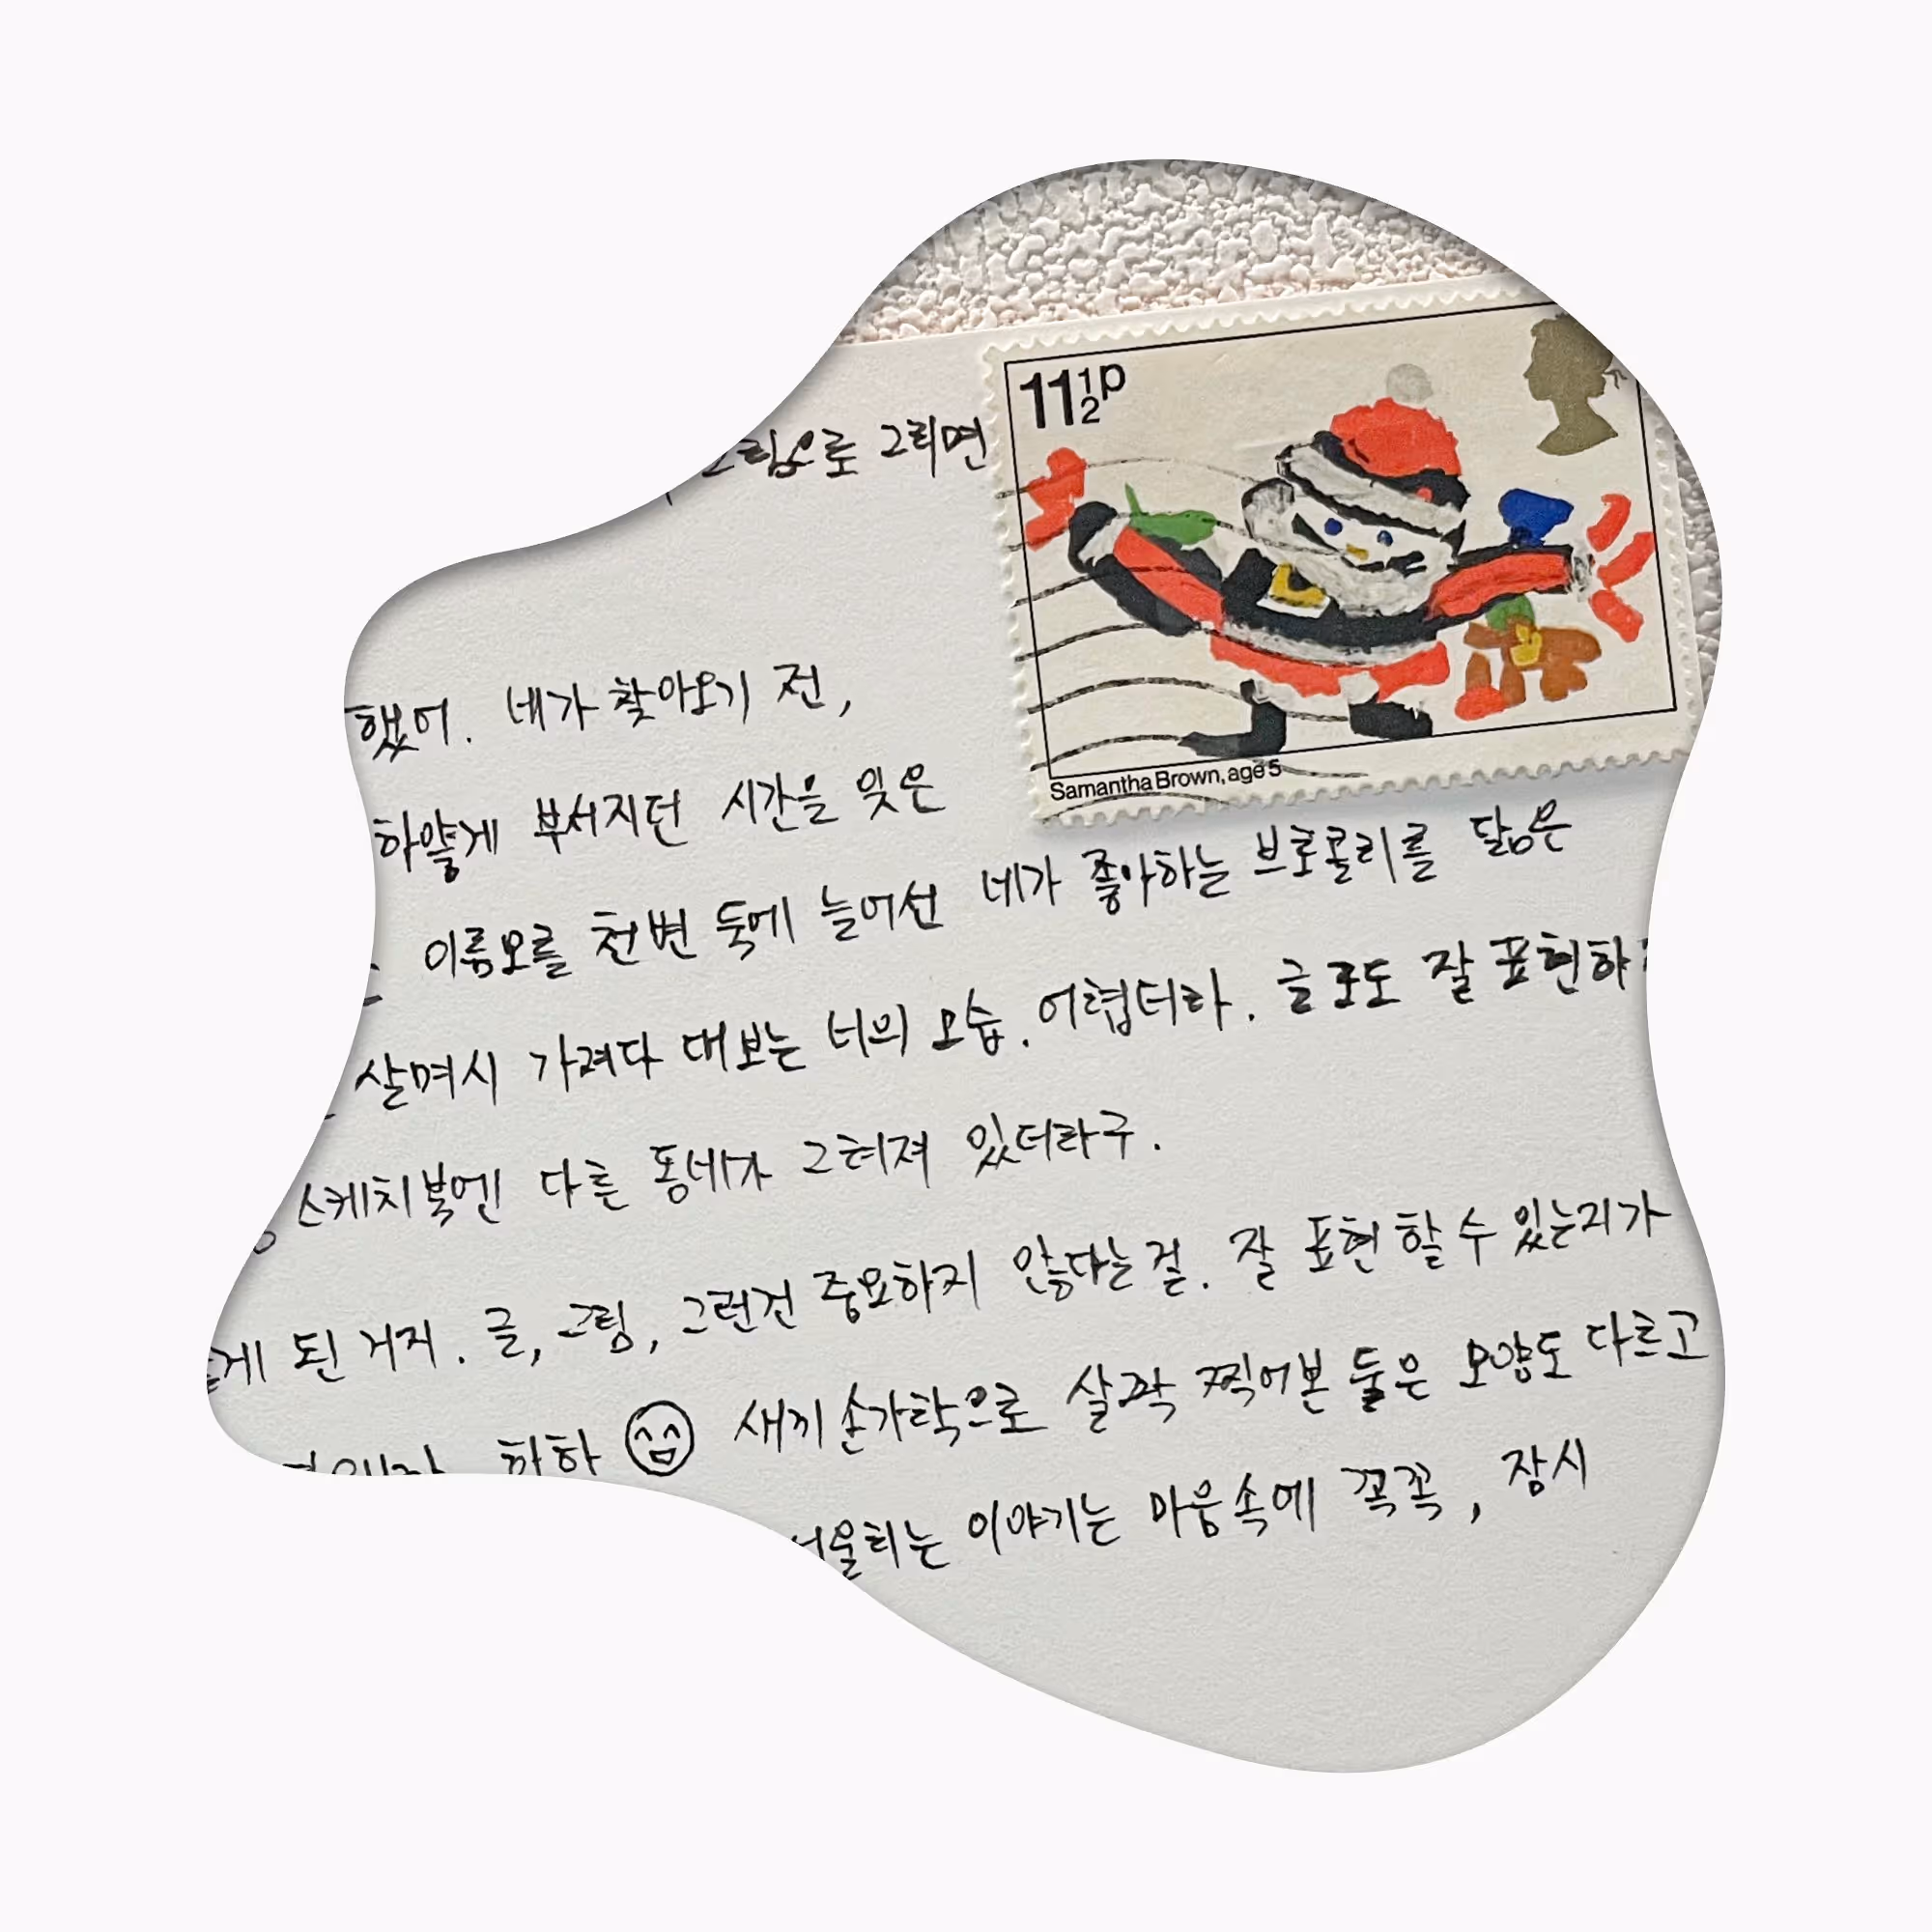 11½P
그리면
Samantha Brown, age 5
했어. 네가 찾아오기 전,
하얗게 부서지던 시간을 잊은
이름모를 천변 둑에 늘어선 네가 좋아하는 브로콜리를 닮은
살며시 가려다 대보는 너의 모습. 어렵더라. 글로도 잘 표현하
스케치북엔 다른 동네가 그려져 있더라구.
게 된 거지. 글, 그림, 그런건 중요하지 않다는걸. 잘 표현 할 수 있는지가
하하 새끼 손가락으로 살짝 찍어본 둘은 모양도 다르고
이야기는 마음속에 꼭꼭, 잠시